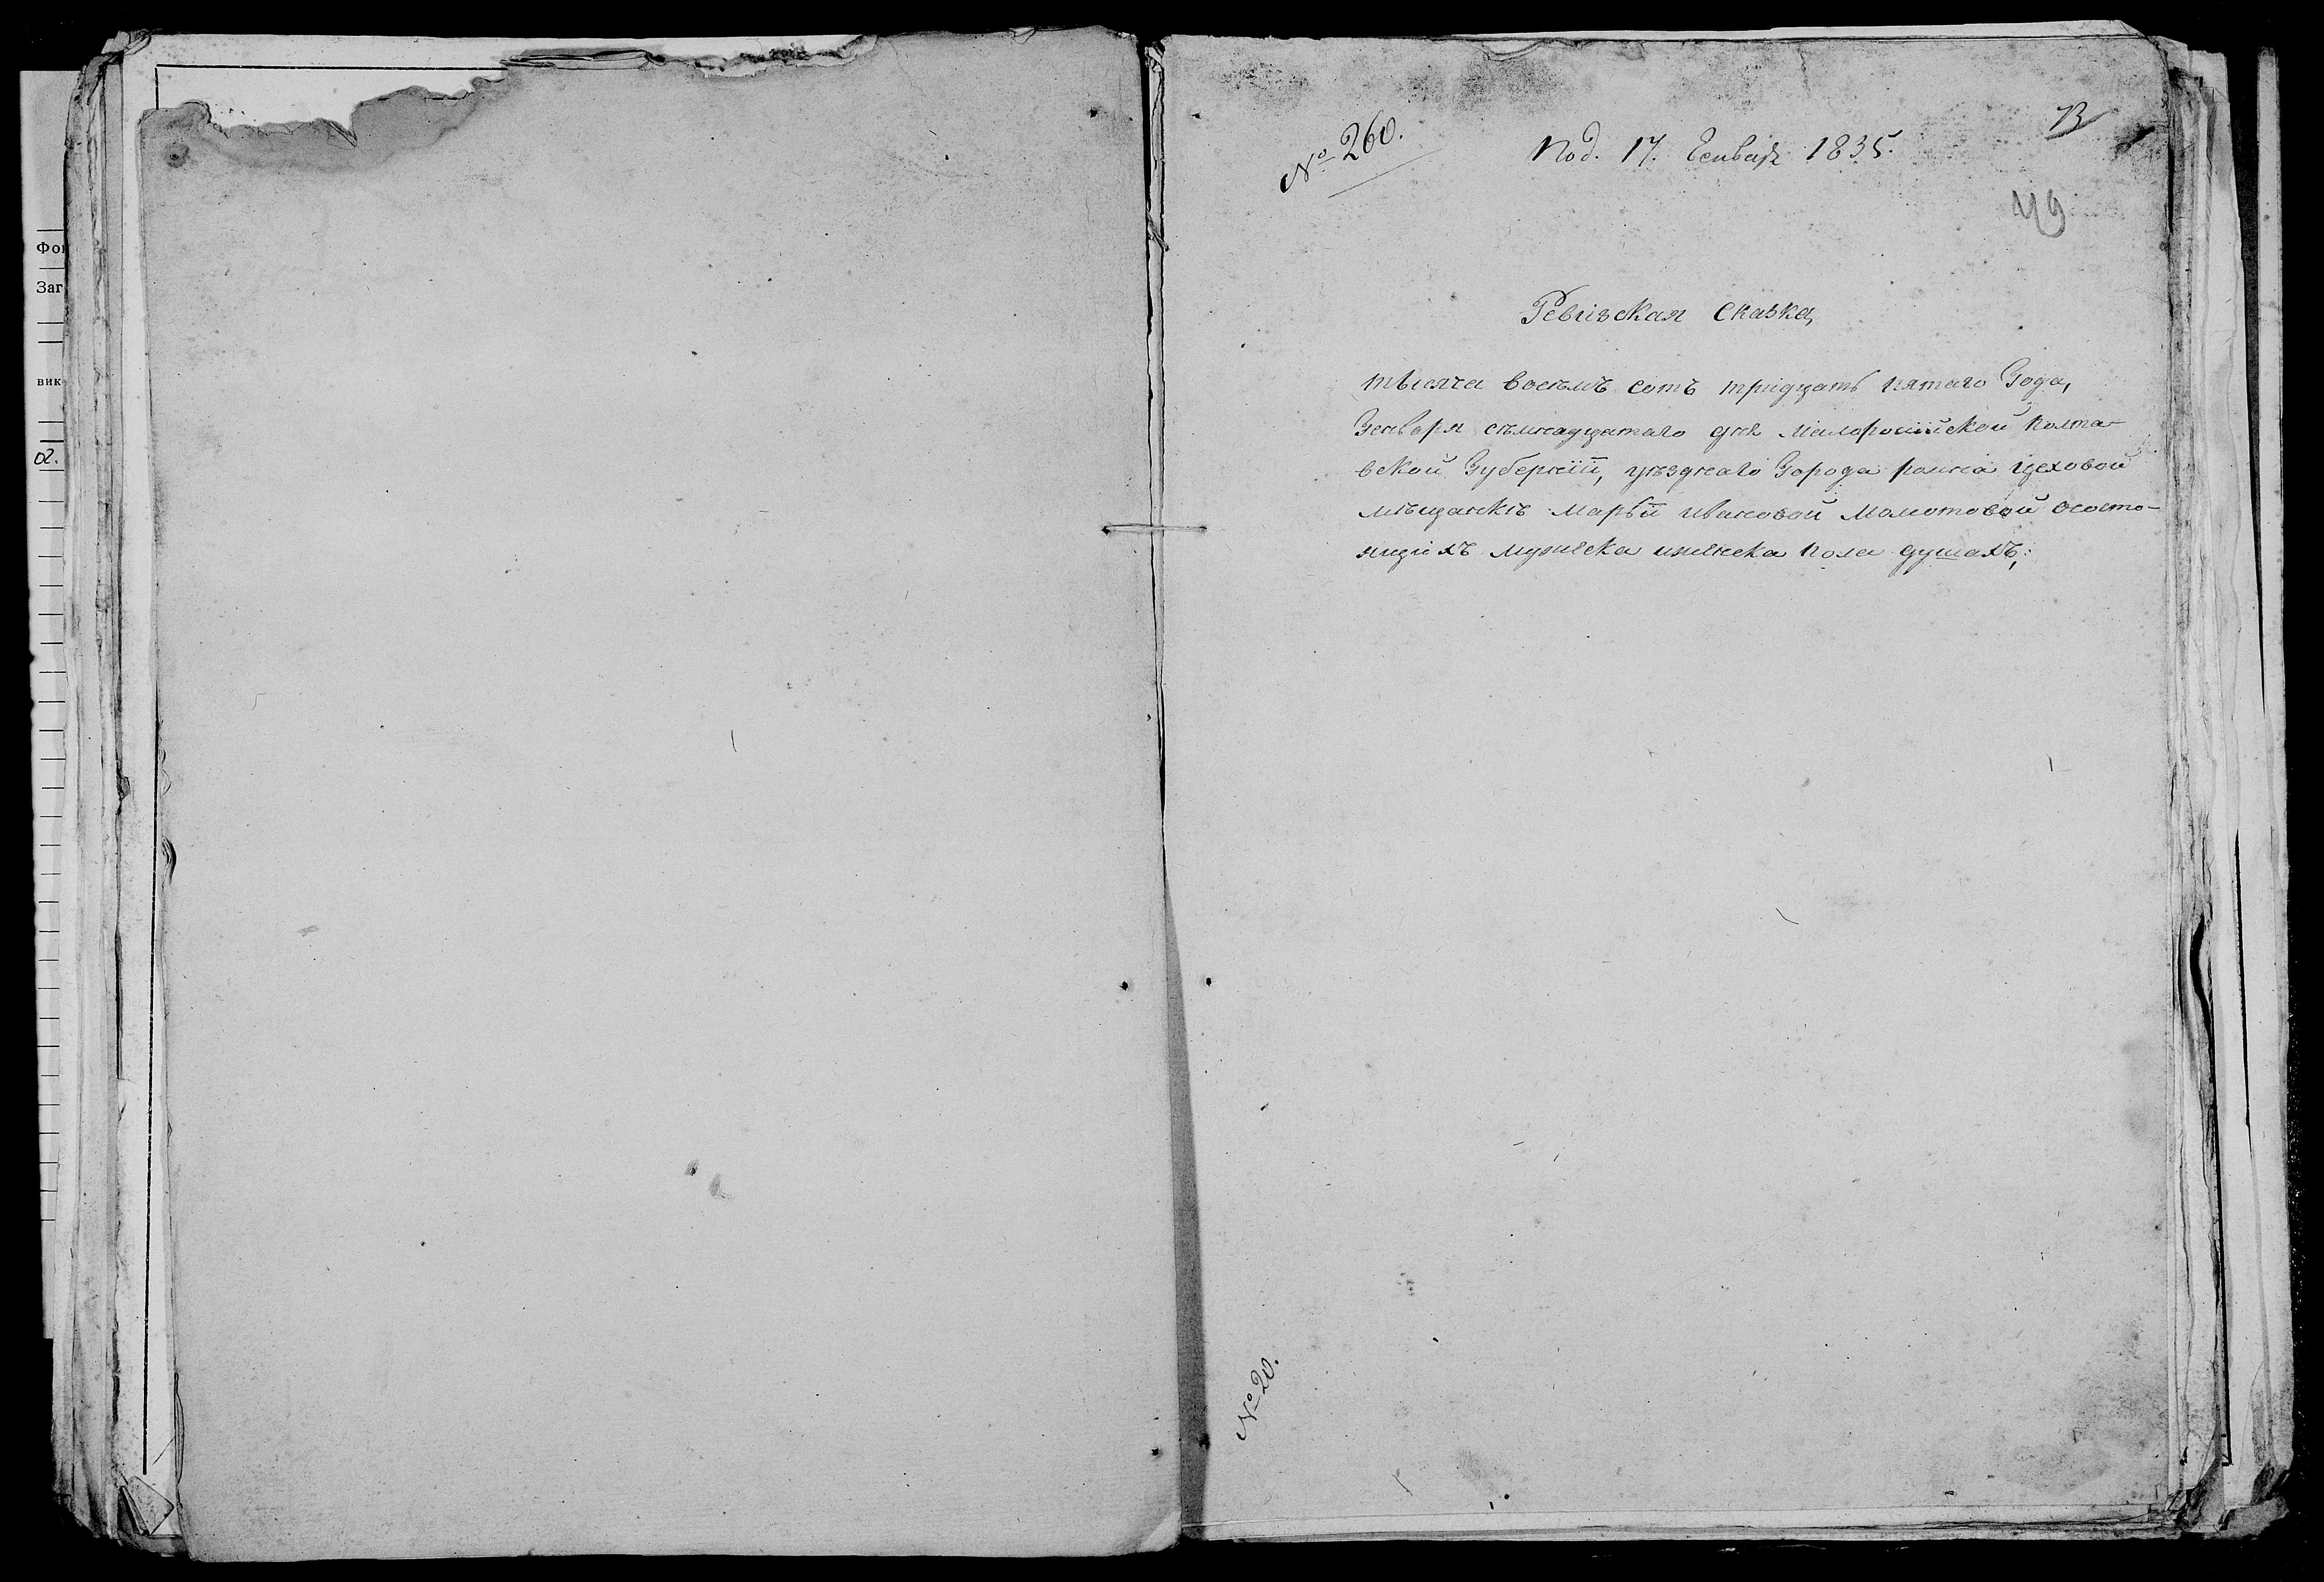 Фон
Заг
вик
02.
№ 260.
Под. 17. Генваря 1835.
73
49
Ревизская сказка,
тысяча восемъ сотъ тридцать пятаго Года,
Генваря семнадцатаго дня Малороссійской Полта-
вской Губерніи, уезднаго Города ромна цеховой
мѣщанкѣ Марьи ивановой Молотовой ососто-
ящихъ мужеска иженска Пола душахъ;
№ 20.